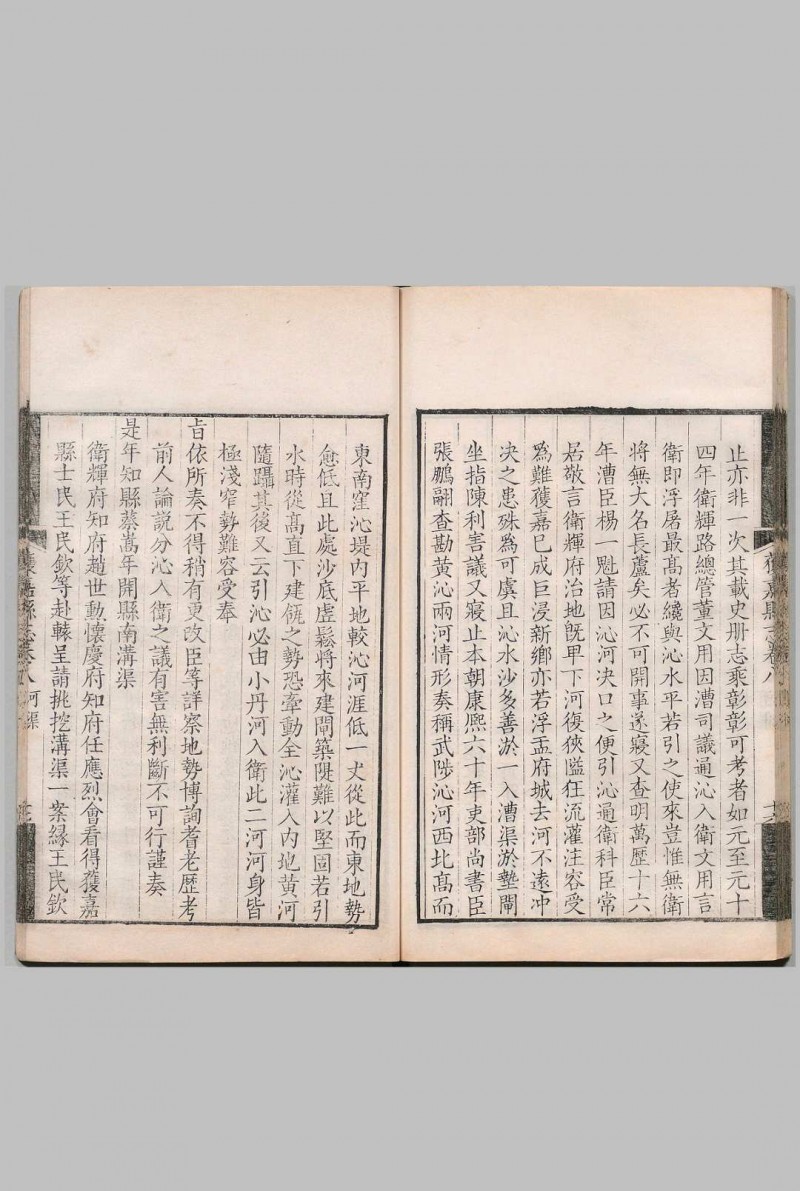 止亦非一次其載史册志乘彰彰可考者如元至元十
四年衛輝路總管董文用因漕司議通沁入衛文用言
衛即浮屠最髙者纔與沁水平若引之使來豈惟無衛
將無大名長蘆矣必不可開事遂寢又查明萬歷十六
年漕臣楊一魁請因沁河决口之便引沁通衛科臣常
居敬言衛輝府治地旣卑下河復狹隘狂流灌注容受
爲難獲嘉巳成巨浸新鄉亦若浮盂府城去河不遠冲
决之患殊爲可虞且沁水沙多善淤一入漕渠淤墊閘
坐指陳利害議又寢止本朝康熈六十年吏部尚書臣
張鵬翮查勘黃沁兩河情形奏稱武陟沁河西北髙而
東南窪沁堤内平地較沁河涯低一丈從此而東地勢
愈低且此處沙底虚鬆將來建閘築隄難以堅固若引
水時從髙直下建瓴之勢恐牽動全沁灌入内地黃河
隨躡其後又云引沁必由小丹河入衛此二河河身皆
極淺窄勢難容受奉
旨依所奏不得稍有更改臣等詳察地勢博詢耆老歷考
前人論說分沁入衛之議有害無利斷不可行謹奏
是年知縣蔡嵩年開縣南溝渠
衛輝府知府趙世勳懷慶府知府任應烈會看得獲嘉
縣士民王民欽等赴轅呈請挑挖溝渠一案緣王民欽
獲嘉縣志卷八 河渠